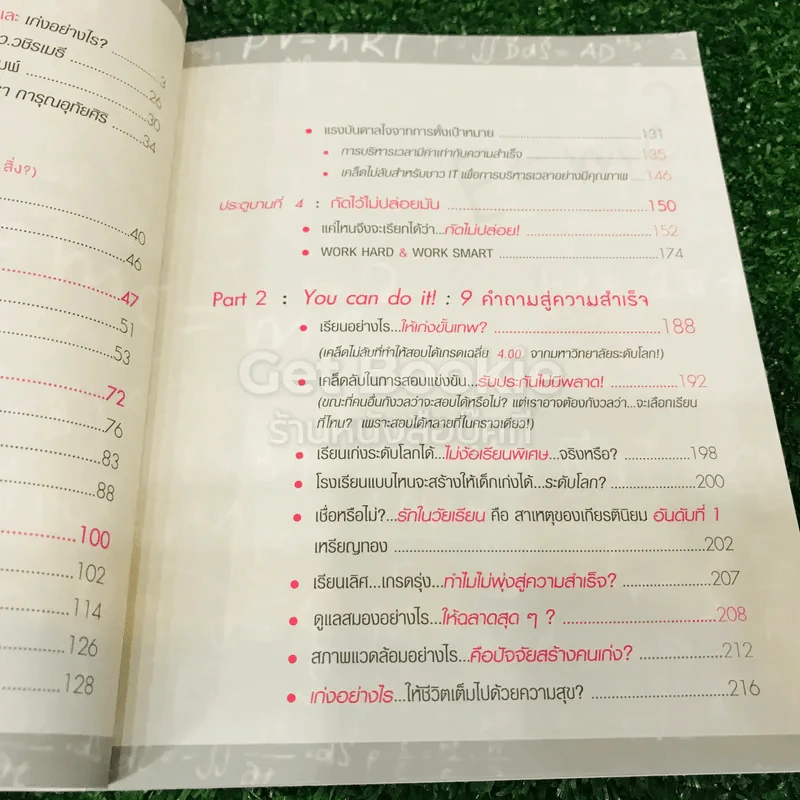 และ เก่งอย่างไร?
ว.วชิรเมธี ........ 3
มพ์ ........ 26
........ 30
า การุณอุทัยศิริ ........ 34
สิ่ง?)
........ 40
........ 46
........ 47
........ 51
........ 53
........ 72
........ 76
........ 83
........ 88
........ 100
........ 102
........ 114
........ 126
........ 128
PV=nRT
• แรงบันดาลใจจากการตั้งเป้าหมาย ........ 131
• การบริหารเวลามีค่าเท่ากับความสำเร็จ ........ 135
• เคล็ดไม่ลับสำหรับชาว IT เพื่อการบริหารเวลาอย่างมีคุณภาพ .... 146
ประตูบานที่ 4 : กัดไว้ไม่ปล่อยมัน ........ 150
• แค่ไหนจึงจะเรียกได้ว่า...กัดไม่ปล่อย! ........ 152
• WORK HARD & WORK SMART ........ 174
Part 2 : You can do it! : 9 คำถามสู่ความสำเร็จ
• เรียนอย่างไร...ให้เก่งขั้นเทพ? ........ 188
(เคล็ดไม่ลับที่ทำให้สอบได้เกรดเฉลี่ย 4.00 จากมหาวิทยาลัยระดับโลก!)
• เคล็ดลับในการสอบแข่งขัน...รับประกันไม่มีพลาด! ........ 192
(ขณะที่คนอื่นกังวลว่าจะสอบได้หรือไม่? แต่เราอาจต้องกังวลว่า...จะเลือกเรียน
ที่ไหน? เพราะสอบได้หลายที่ในคราวเดียว!)
• เรียนเก่งระดับโลกได้...ไม่ง้อเรียนพิเศษ...จริงหรือ? ........ 198
• โรงเรียนแบบไหนจะสร้างให้เด็กเก่งได้...ระดับโลก? ........ 200
• เชื่อหรือไม่?...รักในวัยเรียน คือ สาเหตุของเกียรตินิยม อันดับที่ 1
เหรียญทอง ........ 202
• เรียนเลิศ...เกรดรุ่ง...ทำไมไม่พุ่งสู่ความสำเร็จ? ........ 207
• ดูแลสมองอย่างไร...ให้ฉลาดสุด ๆ ? ........ 208
• สภาพแวดล้อมอย่างไร...คือปัจจัยสร้างคนเก่ง? ........ 212
• เก่งอย่างไร...ให้ชีวิตเต็มไปด้วยความสุข? ........ 216
Get Bookie
ร้านหนังสือบุ๊คกี้